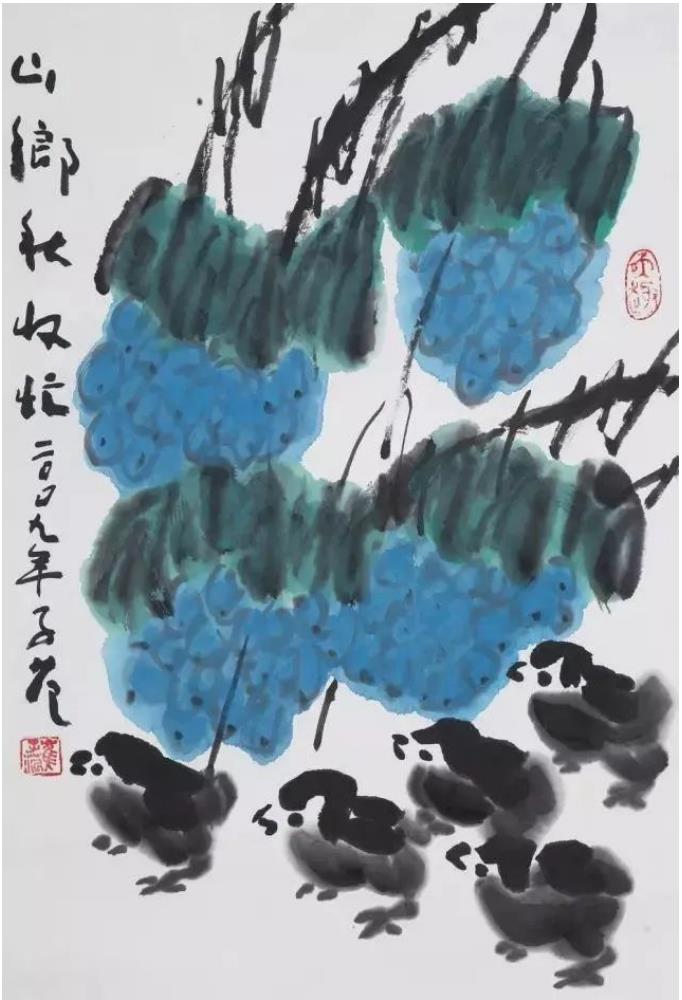 山鄉秋收忙 二〇〇九年 子范